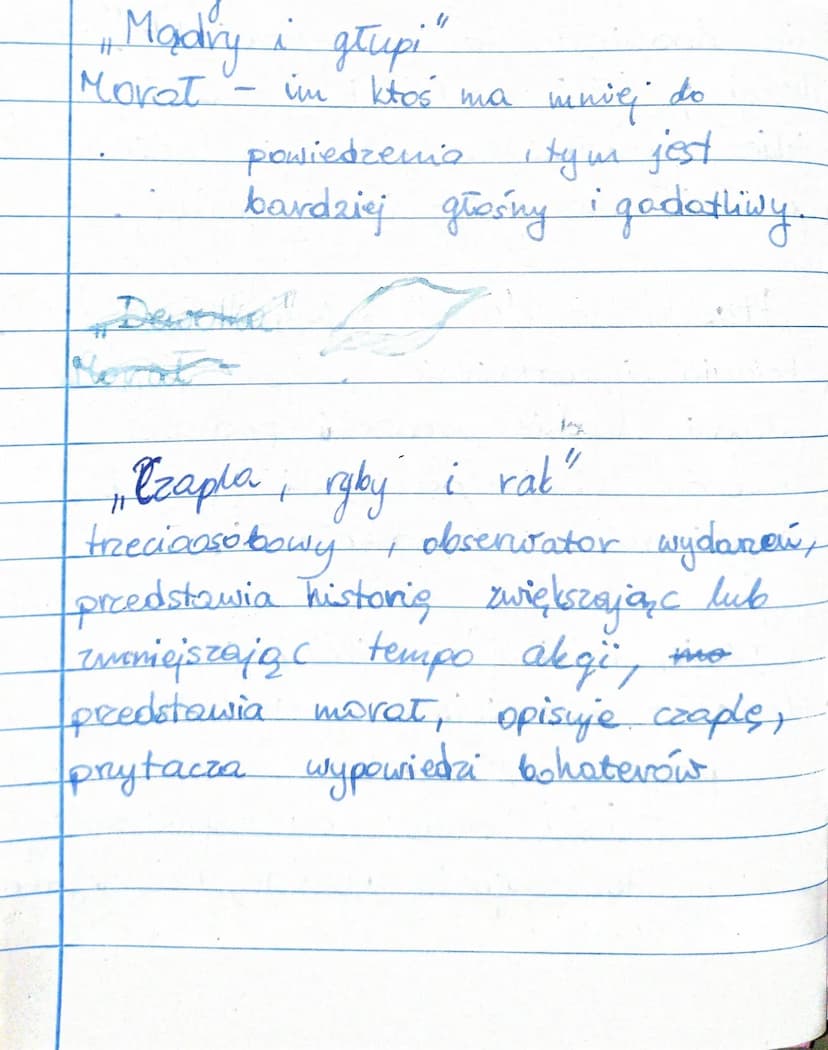 „Mądry i głupi"
Morał – im ktoś ma mniej do
powiedzenia, tym jest
bardziej głośny i gadatliwy.
„Dewotka"
Morał
„Czapla, ryby i rak"
trzecioosobowy, obserwator wydarzeń,
przedstawia historię zwiększając lub
zmniejszając tempo akcji, mo
przedstawia morał, opisuje czaplę,
przytacza wypowiedzi bohaterów